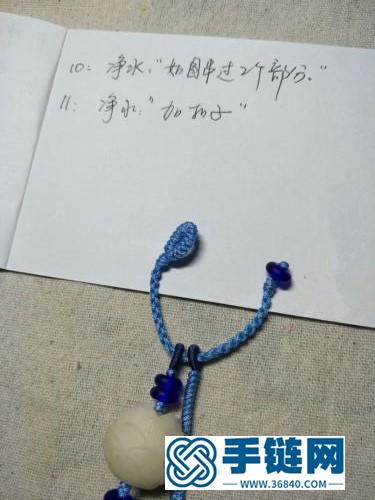 10：净水："如图串过2个部分。"
11：净水："加扣子"
手链网
www.36840.com